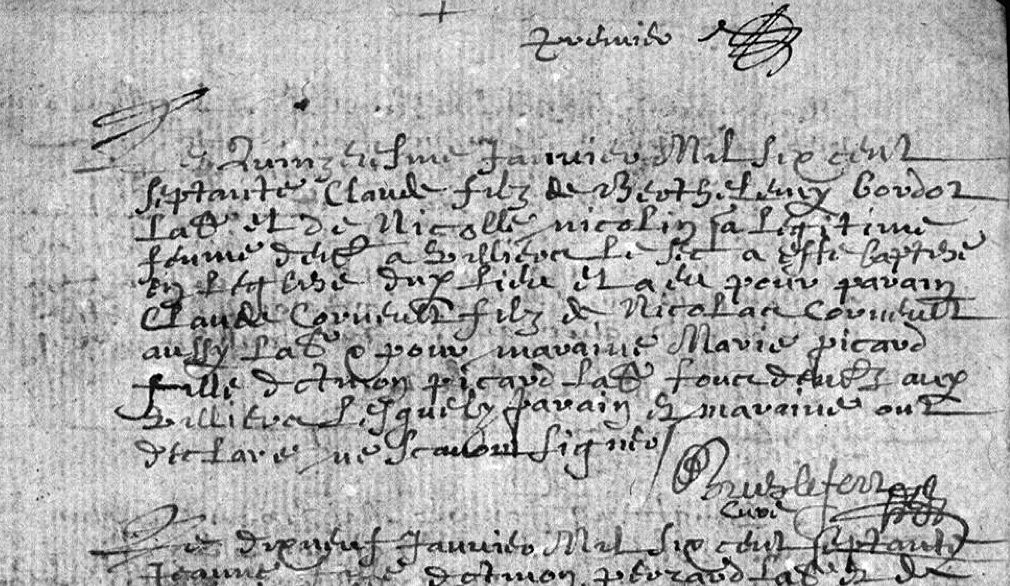 premier
Le Quinzeiesme Janvier Mil six cent
septante Claude filz de Berthelemy bordot
lab et de Nicolle nicolin sa legitime
femme demt a Villiers le sec a este baptise
en leglise dud lieu et a eu pour parain
Claude Cornuelt filz de Nicolas Cornuelt
aussy lab & pour maraine Marie picard
fille de picard lab tous demtz aud
Villiers lesquelz parain et maraine ont
declare ne scavoir signer
curé
Le dixneuf Janvier Mil six cent septante
Jeanne de lab et de